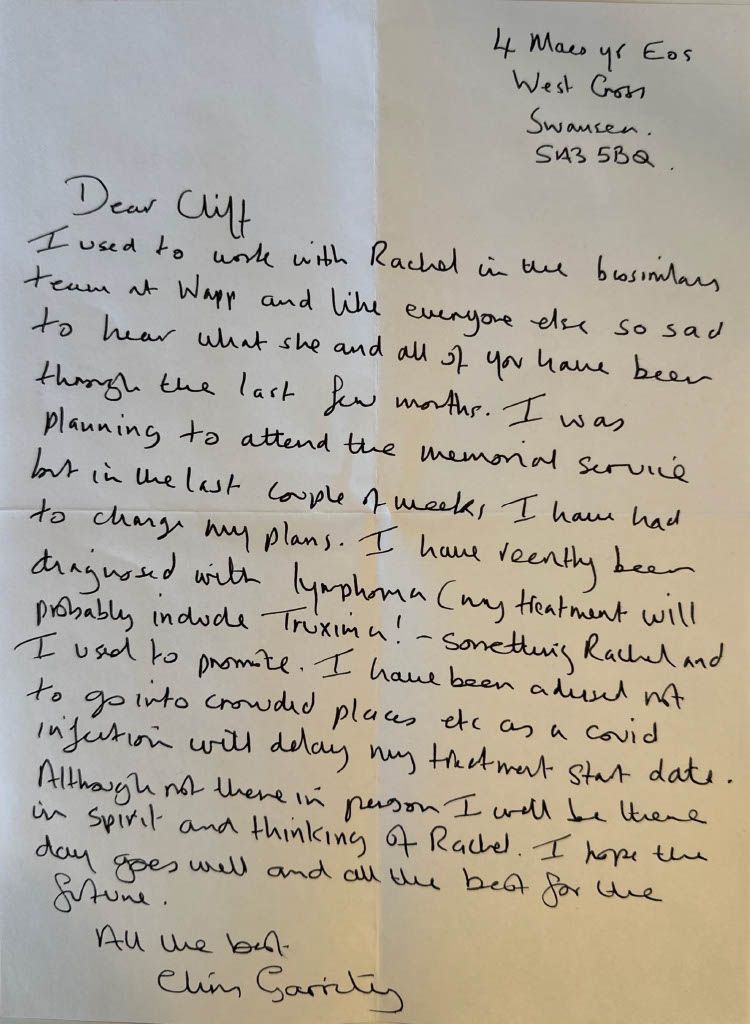 4 Maes yr Eos
West Cross
Swansea.
SA3 5BQ.
Dear Cliff
I used to work with Rachel in the biosimilars
team at Napp and like everyone else so sad
to hear what she and all of you have been
through the last few months. I was
planning to attend the memorial service
but in the last couple of weeks I have had
to change my plans. I have recently been
diagnosed with lymphoma (my treatment will
probably include Truxima! - something Rachel and
I used to promote. I have been advised not
to go into crowded places etc as a covid
infection will delay my treatment start date.
Although not there in person I will be there
in spirit and thinking of Rachel. I hope the
day goes well and all the best for the
future.
All the best.